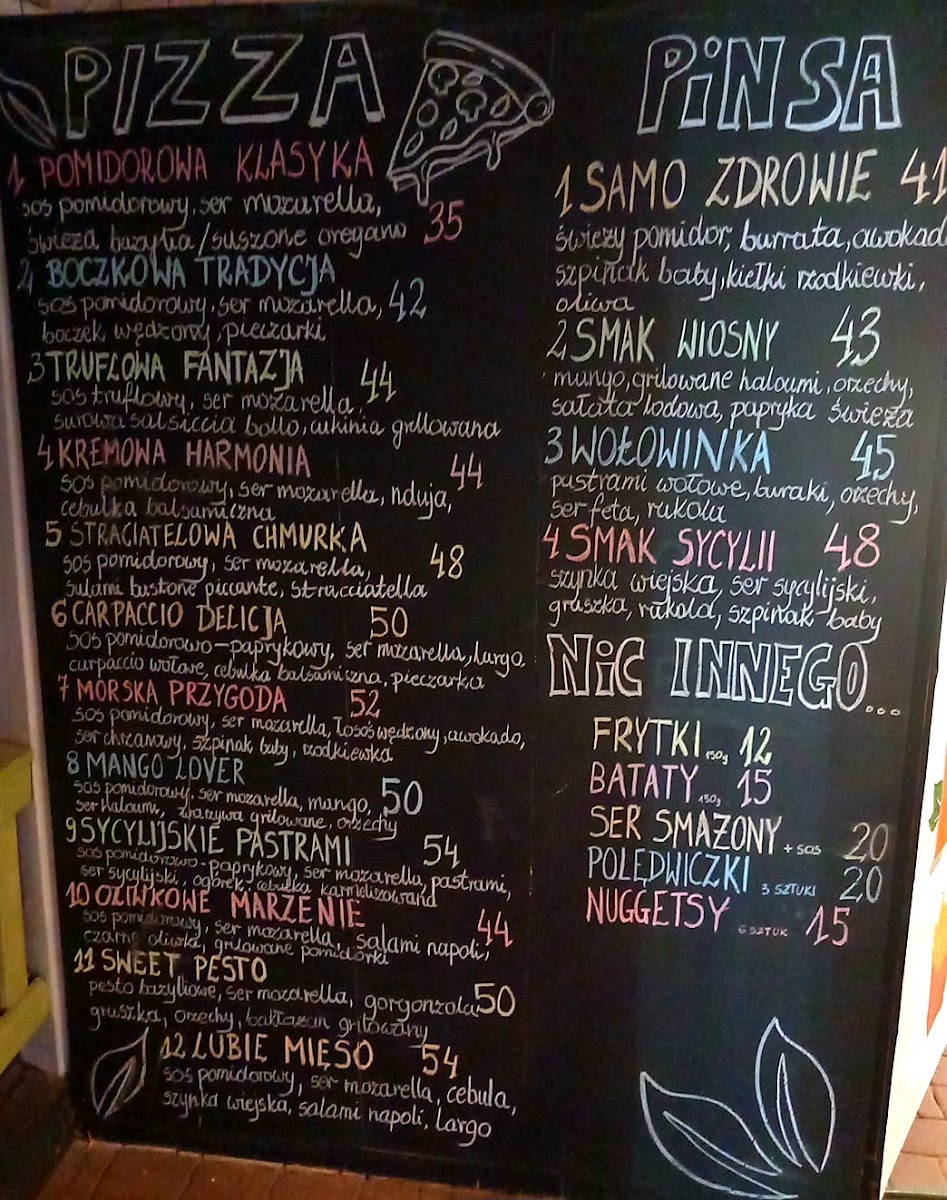 PIZZA
1 POMIDOROWA KLASYKA
sos pomidorowy, ser mozarella,
świeża bazylia / suszone oregano 35
2 BOCZKOWA TRADYCJA
sos pomidorowy, ser mozarella, 42
boczek wędzony, pieczarki
3 TRUFLOWA FANTAZJA
sos truflowy, ser mozarella, 44
surowa salsiccia bollo, cukinia grillowana
4 KREMOWA HARMONIA
sos pomidorowy, ser mozarella, nduja, 44
cebulka balsamiczna
5 STRACIATELOWA CHMURKA
sos pomidorowy, ser mozarella, 48
salami bastone piccante, stracciatella
6 CARPACCIO DELICJA 50
sos pomidorowo-paprykowy, ser mozarella, largo
carpaccio wołowe, cebulka balsamiczna, pieczarka
7 MORSKA PRZYGODA 52
sos pomidorowy, ser mozarella, łosoś wędzony, awokado,
ser chrzanowy, szpinak baby, rzodkiewka
8 MANGO LOVER
sos pomidorowy, ser mozarella, mango, 50
ser haloumi, warzywa grilowane, orzechy
9 SYCYLIJSKIE PASTRAMI 54
sos pomidorowo-paprykowy, ser mozarella, pastrami,
ser sycylijski, ogórek, cebulka karmelizowana
10 OLIWKOWE MARZENIE
sos pomidorowy, ser mozarella, salami napoli, 44
czarne oliwki, grilowane pomidorki
11 SWEET PESTO
pesto bazyliowe, ser mozarella, gorgonzola 50
gruszka, orzechy, bakłażan grilowany
12 LUBIE MIĘSO 54
sos pomidorowy, ser mozarella, cebula,
szynka wiejska, salami napoli, largo
PiNSA
1 SAMO ZDROWIE 41
świeży pomidor, burrata, awokad
szpinak baby, kiełki rzodkiewki,
oliwa
2 SMAK WIOSNY 43
mango, grilowane haloumi, orzechy,
sałata lodowa, papryka świeża
3 WOŁOWINKA 45
pastrami wołowe, buraki, orzechy,
ser feta, rukola
4 SMAK SYCYLII 48
szynka wiejska, ser sycylijski,
gruszka, rukola, szpinak baby
NiC INNEGO...
FRYTKI 150g 12
BATATY 150g 15
SER SMAŻONY + SOS 20
POLĘDWICZKI 3 SZTUKI 20
NUGGETSY 6 SZTUK 15